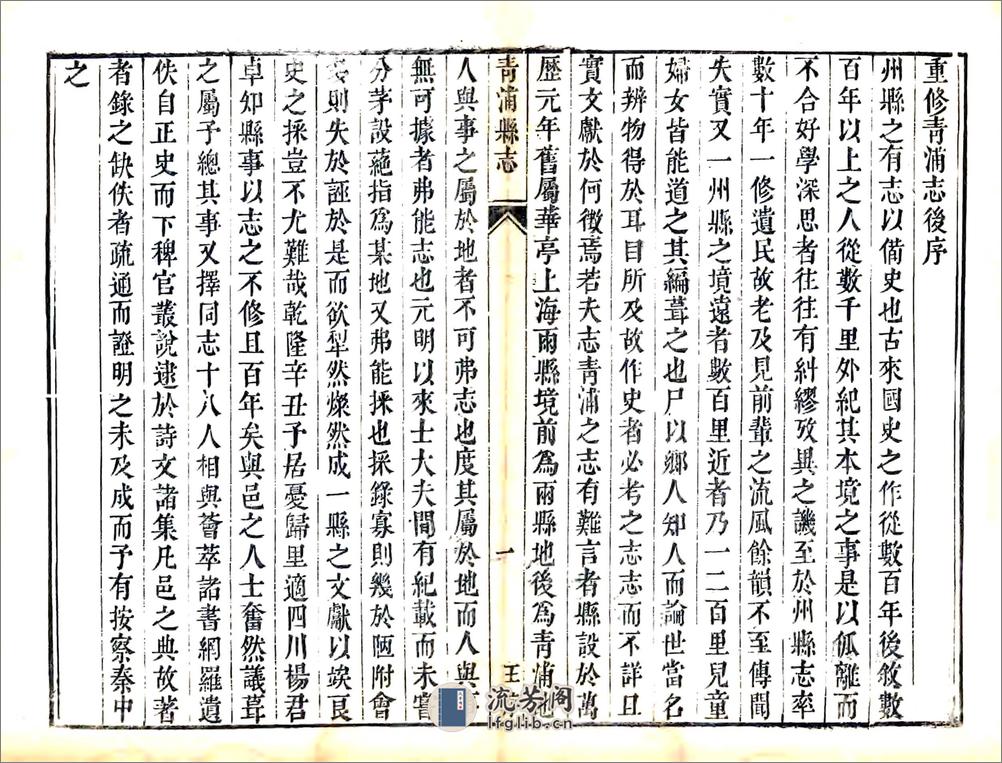 重修靑浦志後序
州縣之有志以備史也古來國史之作從數百年後敘數
百年以上之人從數千里外紀其本境之事是以佤離而
不合好學深思者往往有糾繆攷異之譏至於州縣志率
數十年一修遺民故老及見前輩之流風餘韻不至傳聞
失實又一州縣之境遠者數百里近者乃一二百里兒童
婦女皆能道之其編葺之也尸以鄉人知人而論世當名
而辨物得於耳目所及故作史者必考之志志而不詳且
實文獻於何徵焉若夫志靑浦之志有難言者縣設於萬
歷元年舊屬華亭上海兩縣境前爲兩縣地後爲靑浦地
靑浦縣志
一
王
人與事之屬於地者不可弗志也度其屬於地而人與
無可據者弗能志也元明以來士大夫間有紀載而未嘗
分茅設蕝指爲某地又弗能採也採錄寡則幾於陋附會
則失於誣於是而欲犁然燦然成一縣之文獻以竢良
史之採豈不尤難哉乾隆辛丑予居憂歸里適四川楊君
卓知縣事以志之不修且百年矣與邑之人士奮然議葺
之屬予總其事又擇同志十八人相與薈萃諸書網羅遺
佚自正史而下稗官叢說逮於詩文諸集凡邑之典故著
者錄之缺佚者疏通而證明之未及成而予有按察秦中
之
流芳阁
lfglib.cn